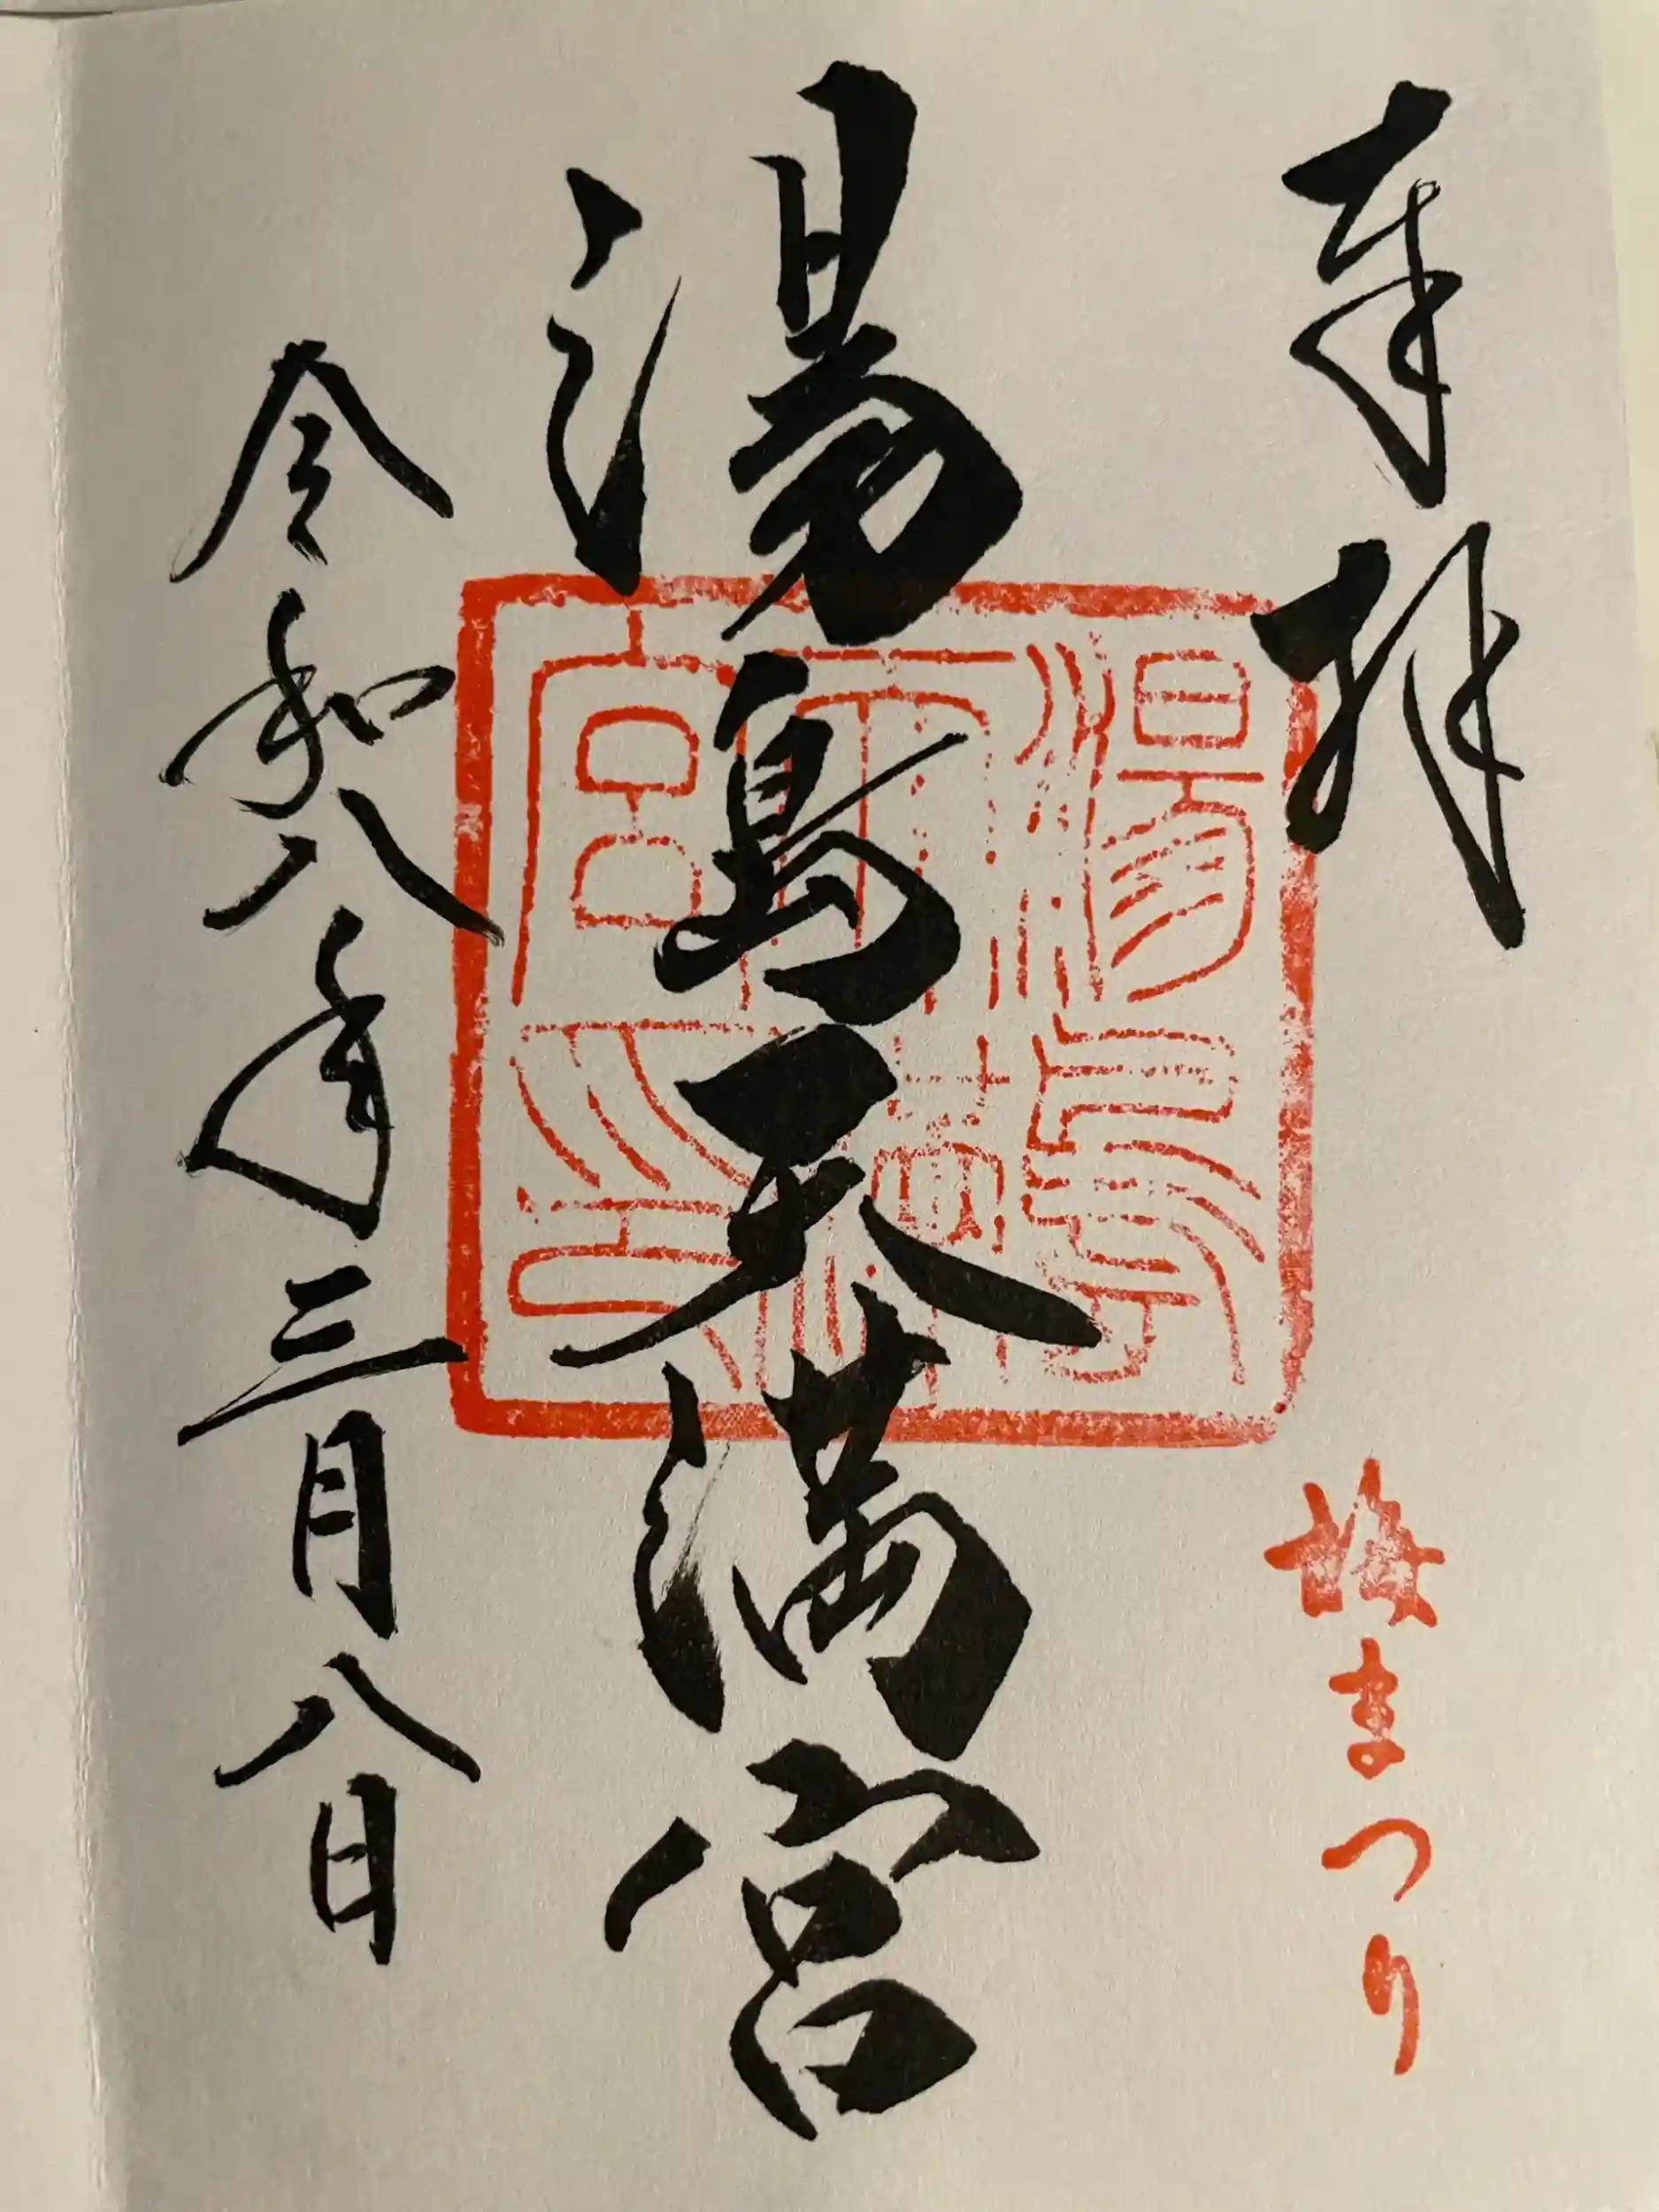 奉拝
梅まつり
湯島天満宮
湯島天満宮印
令和八年三月八日